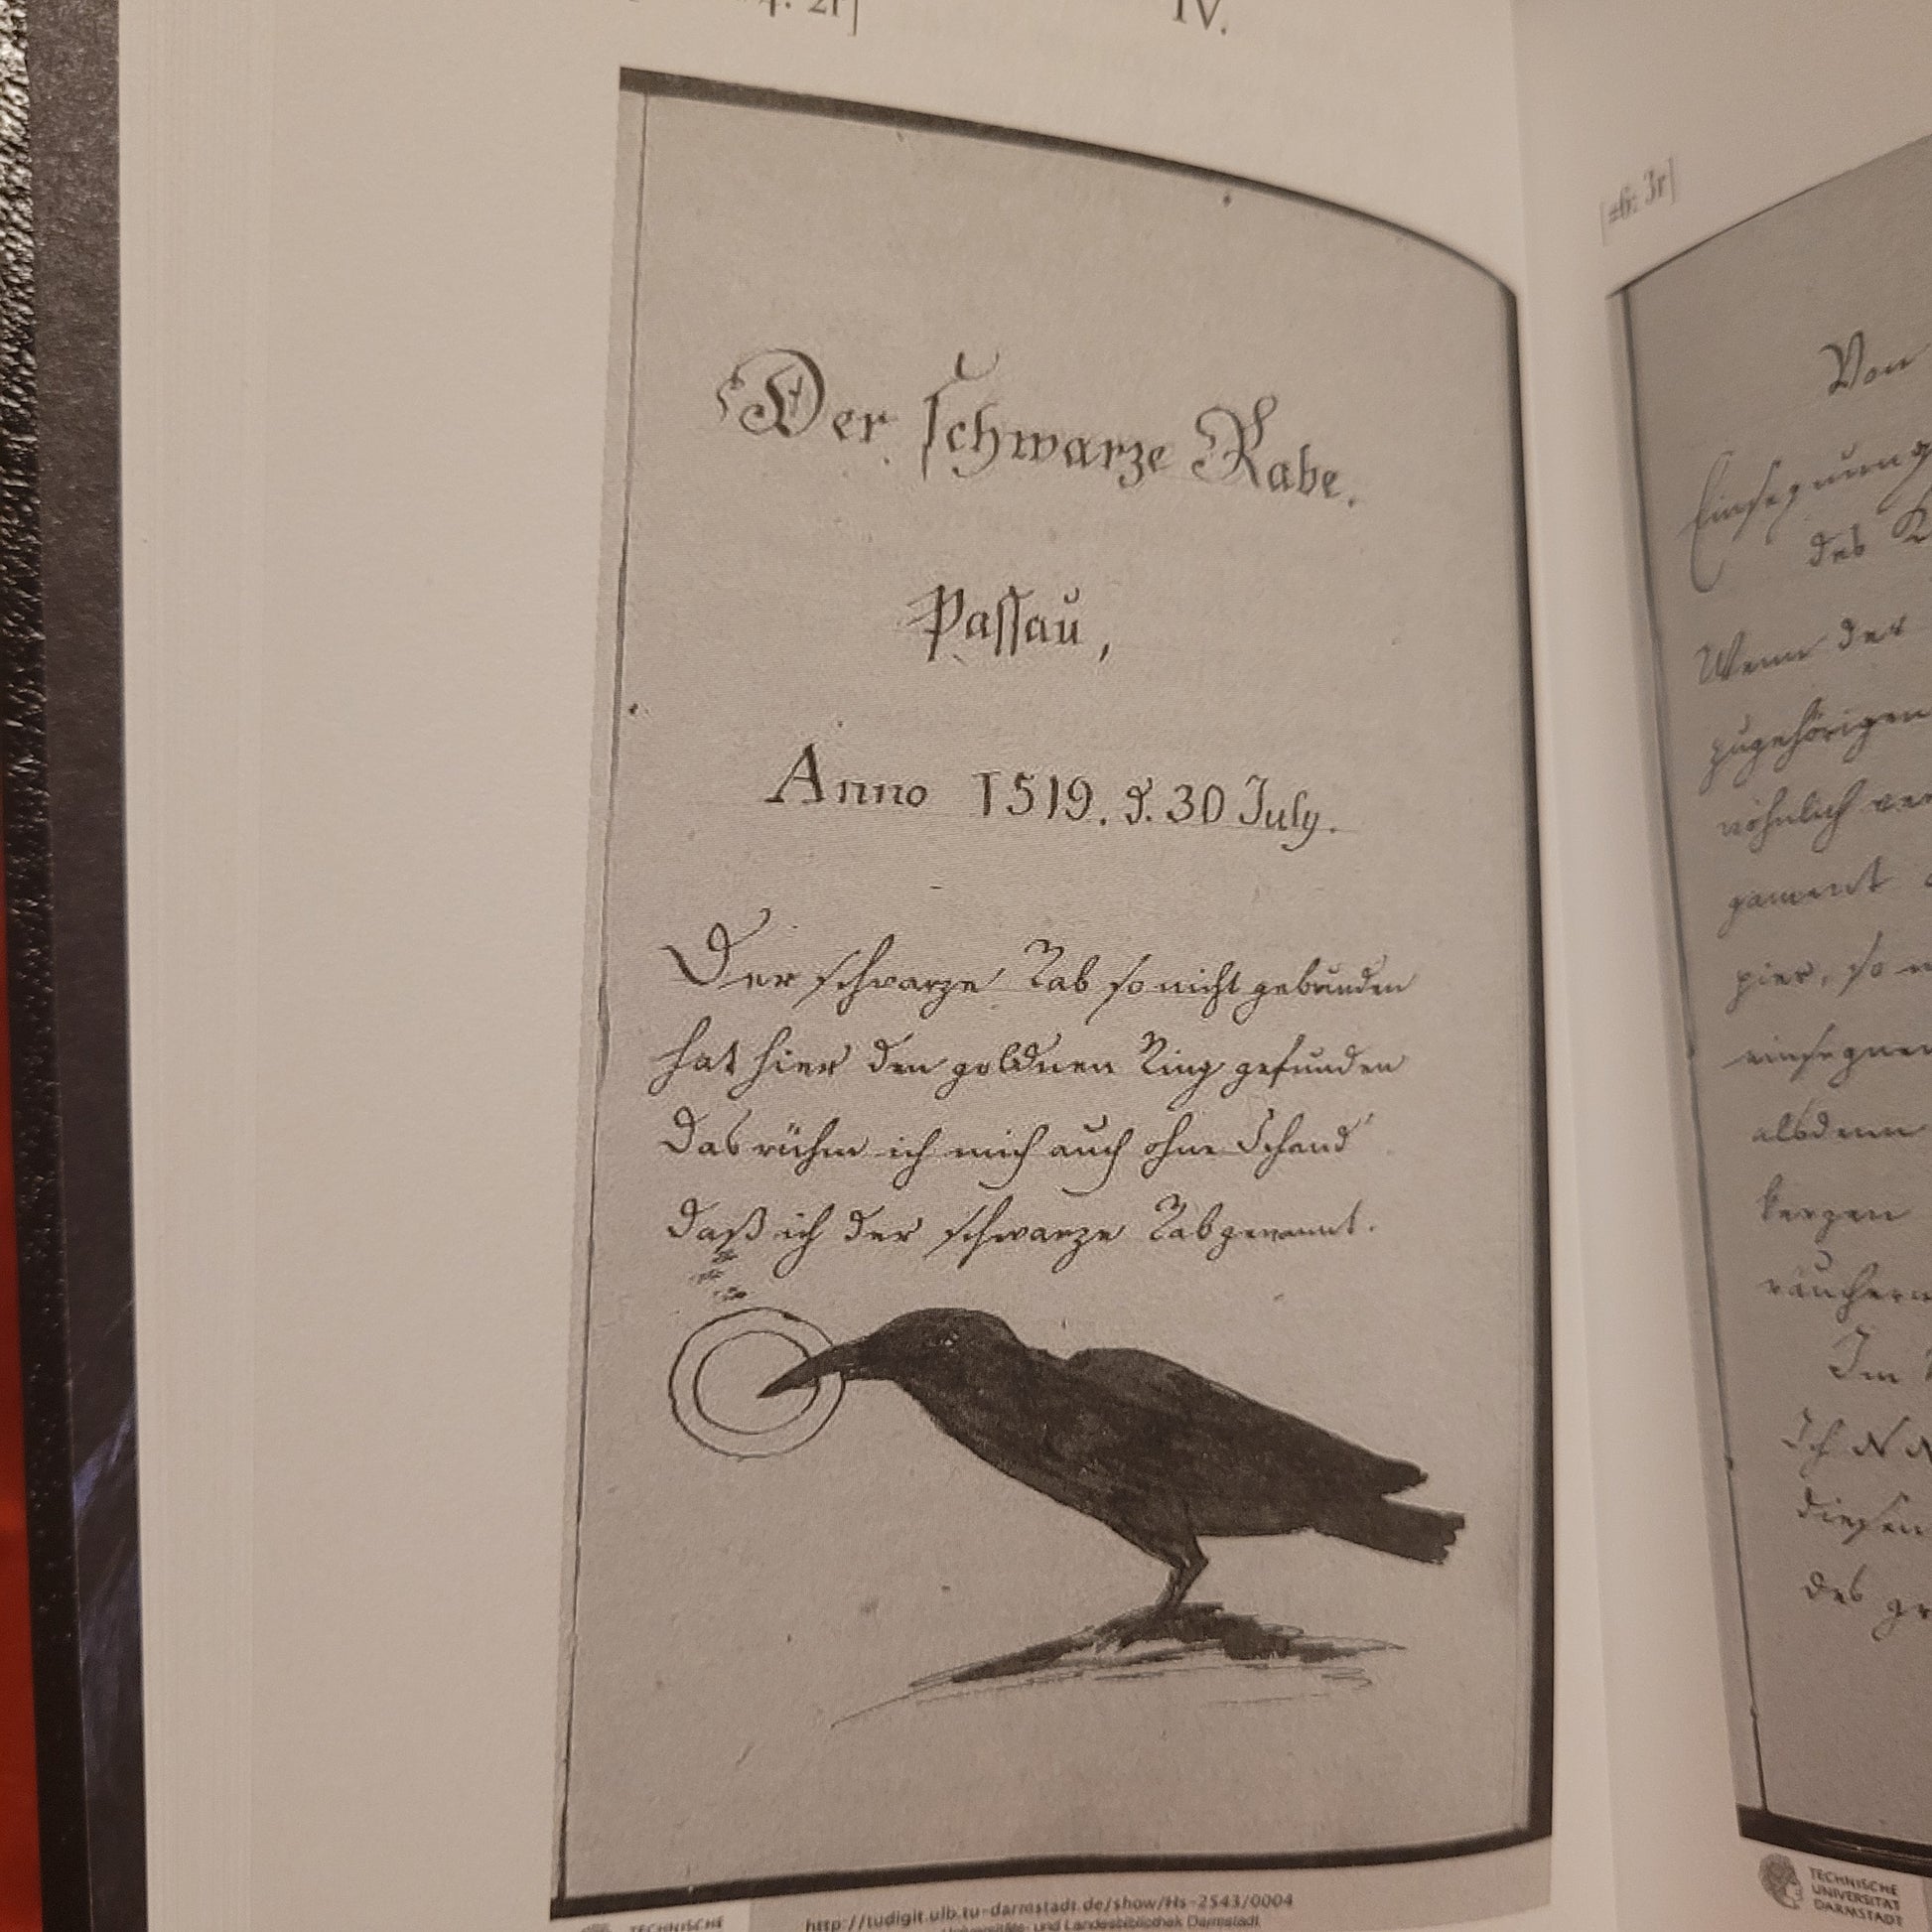 IV.
Der schwarze Rabe.
Passau,
Anno 1519. d. 30 July.
Der schwarze Rab so nicht gebunden
hat hier den goldnen Ring gefunden
Das rühm ich mich auch ohne Schand
daß ich der schwarze Rab genannt.
http://tudigit.ulb.tu-darmstadt.de/show/Hs-2543/0004
Universitäts- und Landesbibliothek Darmstadt
TECHNISCHE
[#6: 3r]
Von
des
Wenn der
zugehörigen
pier, so
alsdenn
kerzen
räuchern
Im
Ich N N
diesen
des
TECHNISCHE
UNIVERSITÄT
DARMSTADT